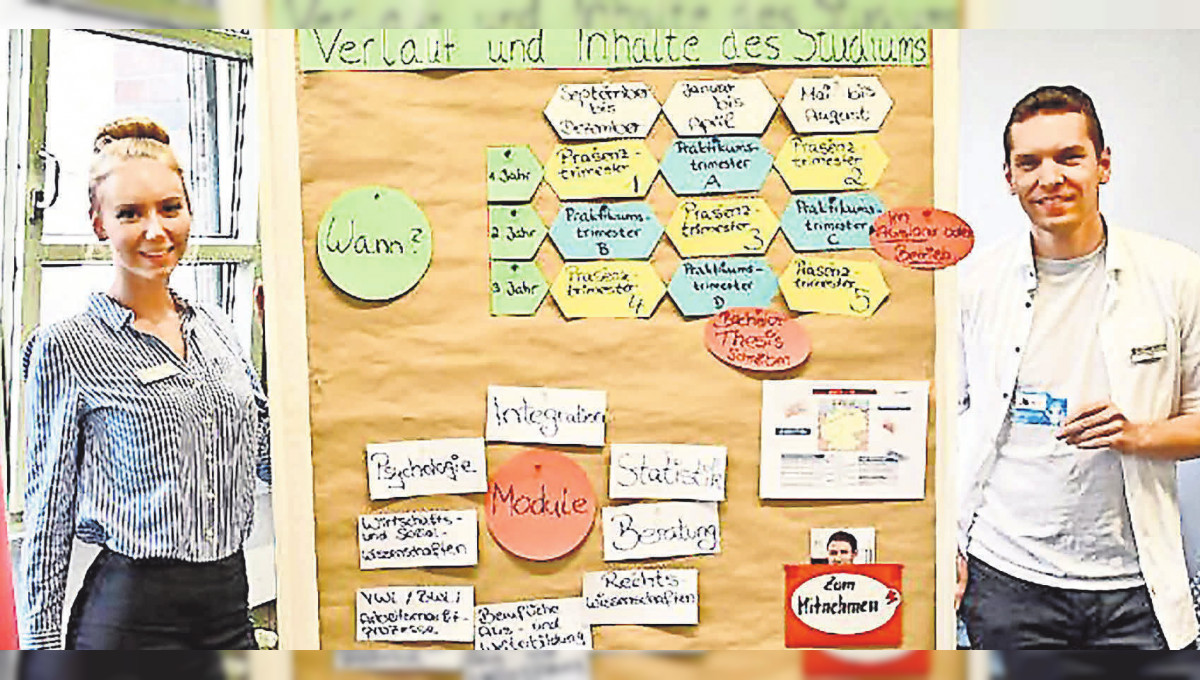 Verlauf und Inhalte des Studiums
September
bis
Dezember
Januar
bis
April
Mai bis
August
1 Jahr
Präsenz-
trimester
1
Praktikums-
trimester
A
Präsenz-
trimester
2
Wann?
2 Jahr
Praktikums-
trimester
B
Präsenz-
trimester
3
Praktikums-
trimester
C
Im
Ausland oder
Betrieb
3 Jahr
Präsenz-
trimester
4
Praktikums-
trimester
D
Präsenz-
trimester
5
Bachelor
Thesis
schreiben
Integration
Psychologie
Statistik
Module
Wirtschafts-
und Sozial-
wissenschaften
Beratung
Rechts
wissenschaften
VWL / BWL /
Arbeitsmarkt-
prozesse
Berufliche
Aus- und
Weiterbildung
Zum
Mitnehmen